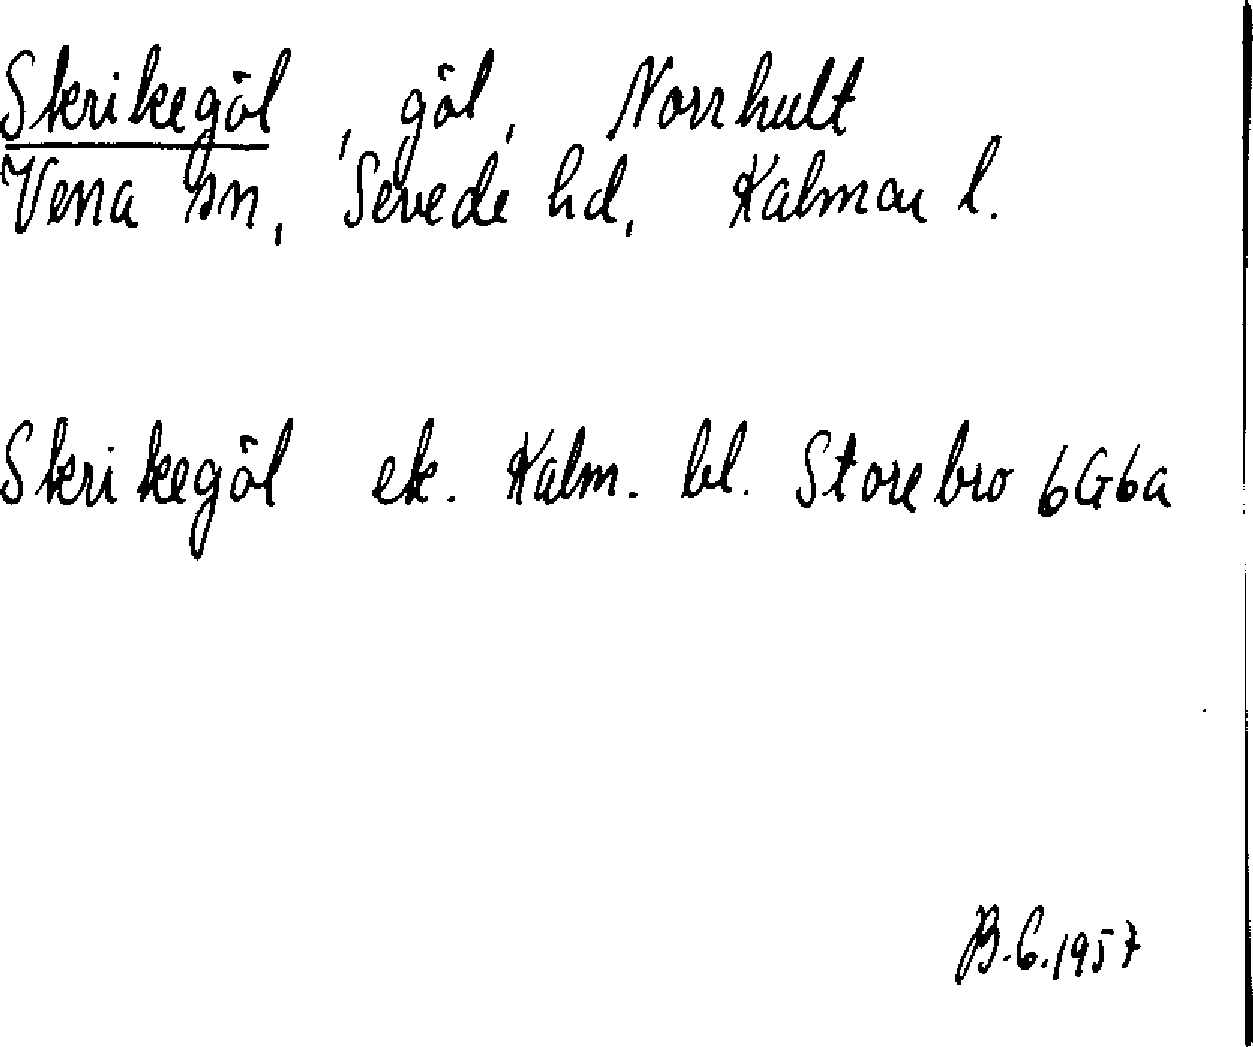 Skrikegöl, göl, Norrhult
Vena sn, Sevede hd, Kalmar l.
Skrikegöl ek. Kalm. bl. Storebro 6G6a
B.G.1957